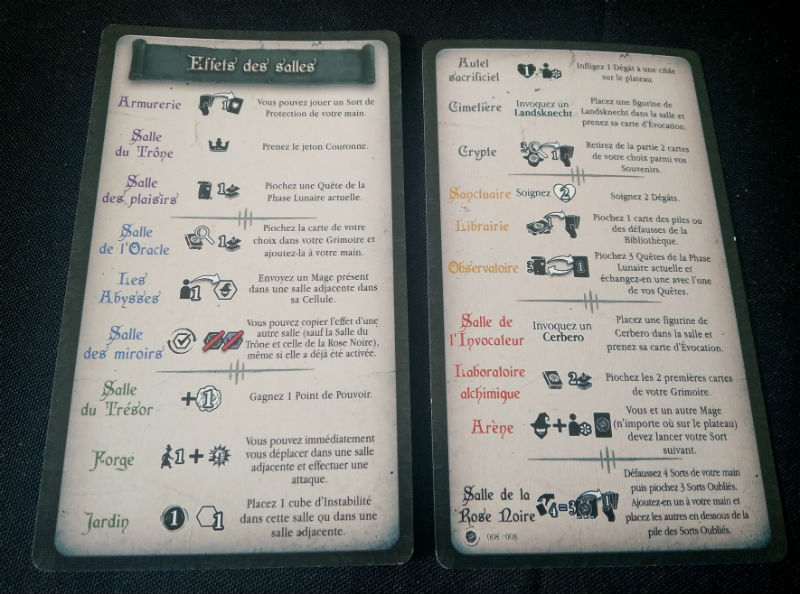 Effets des salles
Armurerie
1
Vous pouvez jouer un Sort de
Protection de votre main.
Salle
du Trône
Prenez le jeton Couronne.
Salle
des plaisirs
1
Piochez une Quête de la
Phase Lunaire actuelle.
Salle
de l'Oracle
1
Piochez la carte de votre
choix dans votre Grimoire et
ajoutez-la à votre main.
Les
Abysses
1
Envoyez un Mage présent
dans une salle adjacente dans
sa Cellule.
Salle
des miroirs
Vous pouvez copier l'effet d'une
autre salle (sauf la Salle du
Trône et celle de la Rose Noire),
même si elle a déjà été activée.
Salle
du Trésor
+1
Gagnez 1 Point de Pouvoir.
Forge
1+
Vous pouvez immédiatement
vous déplacer dans une salle
adjacente et effectuer une
attaque.
Jardin
1
1
Placez 1 cube d'Instabilité
dans cette salle ou dans une
salle adjacente.
Autel
sacrificiel
1
Infligez 1 Dégât à une cible
sur le plateau.
Cimetière
Invoquez un
Landsknecht
Placez une figurine de
Landsknecht dans la salle et
prenez sa carte d'Évocation.
Crypte
Retirez de la partie 2 cartes
de votre choix parmi vos
Souvenirs.
Sanctuaire
Soignez 2
Soignez 2 Dégâts.
Librairie
1
Piochez 1 carte des piles ou
des défausses de la
Bibliothèque.
Observatoire
3
1
Piochez 3 Quêtes de la Phase
Lunaire actuelle et
échangez-en une avec l'une
de vos Quêtes.
Salle de
l'Invocateur
Invoquez un
Cerbero
Placez une figurine de
Cerbero dans la salle et
prenez sa carte d'Évocation.
Laboratoire
alchimique
2
Piochez les 2 premières cartes
de votre Grimoire.
Arène
+
Vous et un autre Mage
(n'importe où sur le plateau)
devez lancer votre Sort
suivant.
Salle de la
Rose Noire
4=3
Défaussez 4 Sorts de votre main
puis piochez 3 Sorts Oubliés.
Ajoutez-en un à votre main et
placez les autres en dessous de la
pile des Sorts Oubliés.
008/008